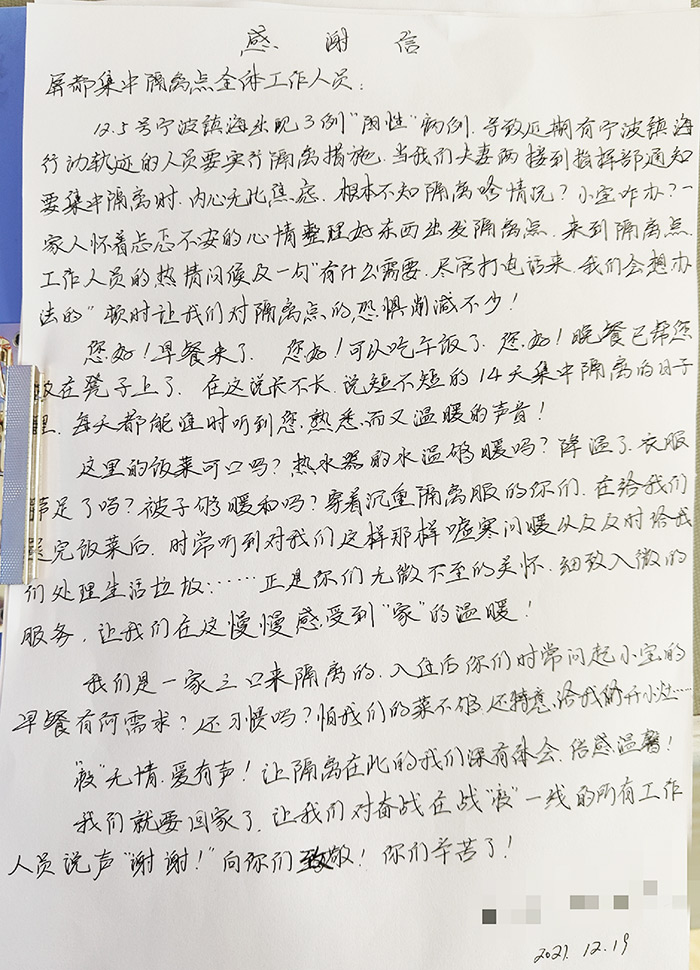 感 谢 信
屏都集中隔离点全体工作人员：
12.5号宁波镇海出现3例“阳性”病例.导致近期有宁波镇海
行动轨迹的人员要实行隔离措施.当我们夫妻两接到指挥部通知
要集中隔离时.内心无比焦虑.根本不知隔离啥情况？小宝咋办？一
家人怀着忐忑不安的心情整理好东西出发隔离点.来到隔离点.
工作人员的热情问候及一句“有什么需要.尽管打电话来.我们会想办
法的”顿时让我们对隔离点的恐惧削减不少！
您好！早餐来了. 您好！可以吃午饭了.您好！晚餐已帮您
放在凳子上了.在这说长不长.说短不短的14天集中隔离的日子
里.每天都能准时听到您熟悉而又温暖的声音！
这里的饭菜可口吗？热水器的水温够暖吗？降温了.衣服
带足了吗？被子够暖和吗？穿着沉重隔离服的你们.在给我们
送完饭菜后.时常听到对我们这样那样嘘寒问暖以及及时给我
们处理生活垃圾……正是你们无微不至的关怀.细致入微的
服务，让我们在这慢慢感受到“家”的温暖！
我们是一家三口来隔离的.入住后你们时常问起小宝的
早餐有何需求？还习惯吗？怕我们的菜不够.还特意给我们开小灶…
“疫”无情.爱有声！让隔离在此的我们深有体会.倍感温馨！
我们就要回家了.让我们对奋战在战“疫”一线的所有工作
人员说声“谢谢！”向你们致敬！你们辛苦了！
2021.12.19